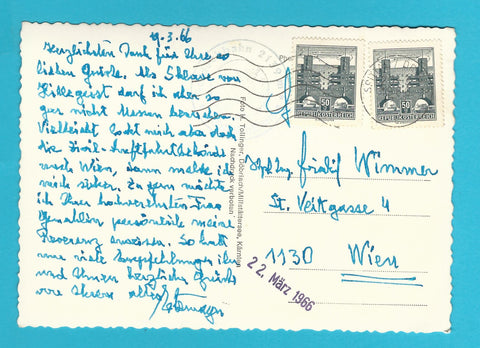 19.3.66
Herzlichsten Dank für Ihre so
lieben Grüße. Als Sklave von
darf ich aber so
gar nicht Wien
Vielleicht lockt mich aber doch
die Zivil-Luftfahrtbehörde
nach Wien, dann melde ich
mich sicher. Zu gern möchte
ich Ihrer hochverehrten Frau
Gemahlin persönlich meine
Reverenz erweisen. So halt
nur viele Empfehlungen ihr
und Ihnen herzliche Grüße
Ihres alten
Foto Tollinger, Döbriach/Millstättersee, Kärnten
Nachdruck verboten
50
REPUBLIK ÖSTERREICH
50
REPUBLIK ÖSTERREICH
Dipl. Ing. Wimmer
St. Veitgasse 4
1130 Wien
22. März 1966